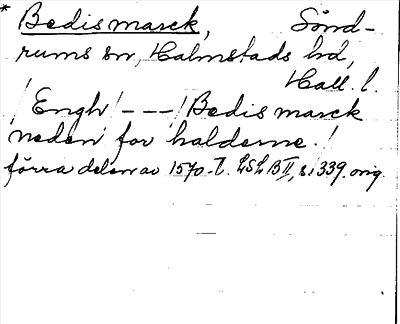 * Bedismarck, Sönd-
rums sn, Halmstads hd,
Hall. l.
/ Engh / --- / Bedismarck
neden for halderne. /
förra delen av 1570-t. LSL B II, s. 339. orig.